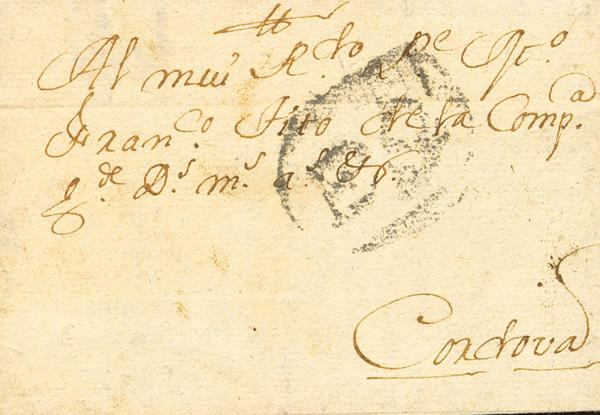 Al mui R.do Pe
Fran.co Tito de la Comp.a
g.de D.s m.s a.s &
Cordova